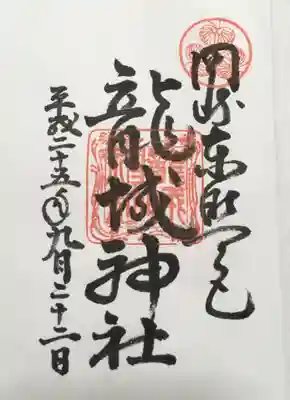 岡崎東照公
龍城神社
平成二十五年九月二十二日